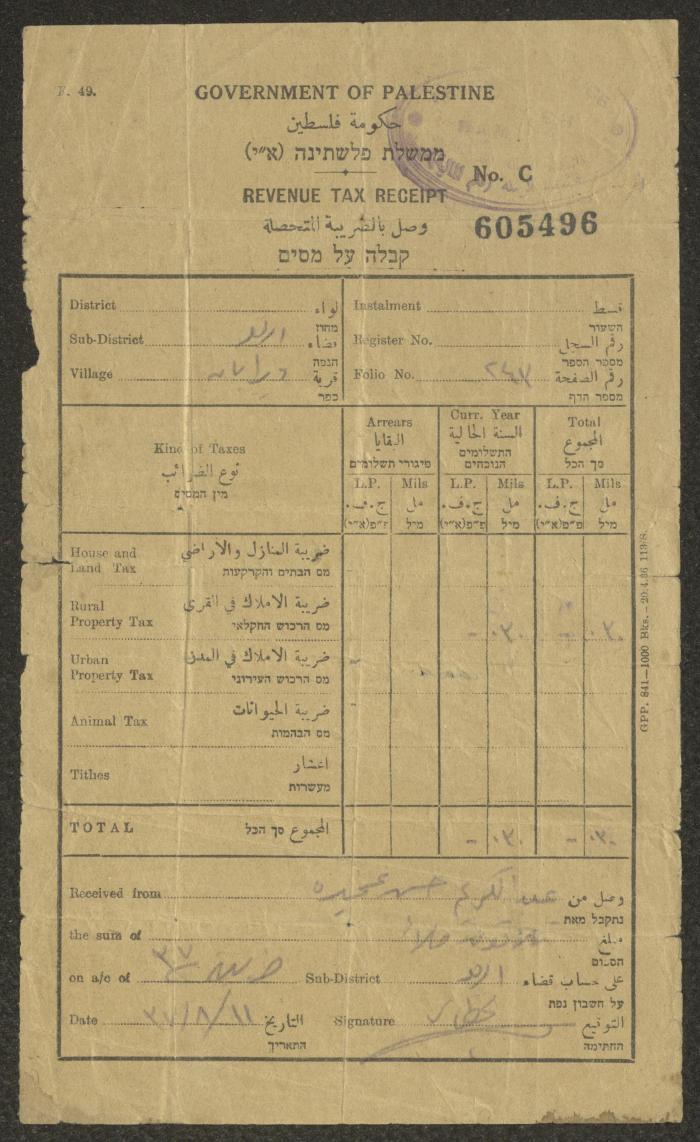 F. 49.
GOVERNMENT OF PALESTINE
حكومة فلسطين
ממשלת פלשתינה (א״י)
No. C
REVENUE TAX RECEIPT
605496
وصل بالضريبة المتحصلة
קבלה על מסים
District لواء
מחוז
Instalment قسط
השעור
Sub-District قضاء
הנפה
Register No. رقم السجل
מספר הספר
Village قرية
כפר
Folio No. ٢٤٣ رقم الصفحة
מספר הדף
Kind of Taxes
نوع الضرائب
מין המסים
Arrears
البقايا
פיגורי תשלומים
Curr. Year
السنة الحالية
התשלומים הנוכחים
Total
المجموع
סך הכל
L.P. Mils L.P. Mils L.P. Mils
ج.ف. مل ج.ف. مل ج.ف. مل
פ״פ(א״י) מיל פ״פ(א״י) מיל פ״פ(א״י) מיל
House and Land Tax ضريبة المنازل والأراضي
מס הבתים והקרקעות
Rural Property Tax ضريبة الاملاك في القرى
מס הרכוש החקלאי
- ٠٣٠ - ٠٣٠
Urban Property Tax ضريبة الاملاك في المدن
מס הרכוש העירוני
Animal Tax ضريبة الحيوانات
מס הבהמות
Tithes اعشار
מעשרות
TOTAL المجموع סך הכל
- ٠٣٠ - ٠٣٠
Received from عبد الكريم حسن وصل من
נתקבל מאת
the sum of مبلغ
הסכום
on a/c of ٣٧ Sub-District على حساب قضاء
על חשבון נפת
Date ٣٧/٨/١١ التاريخ
התאריך
Signature التوقيع
החתימה
GPP. 841—1000 Bks.—20.4.36 113/S.